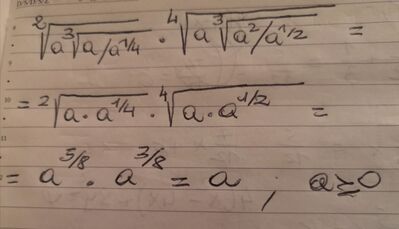 ²√(a ³√(a/a^1/4)) · ⁴√(a ³√(a²/a^1/2)) =
= ²√(a · a^1/4) · ⁴√(a · a^1/2) =
= a^5/8 · a^3/8 = a ; a ≥ 0